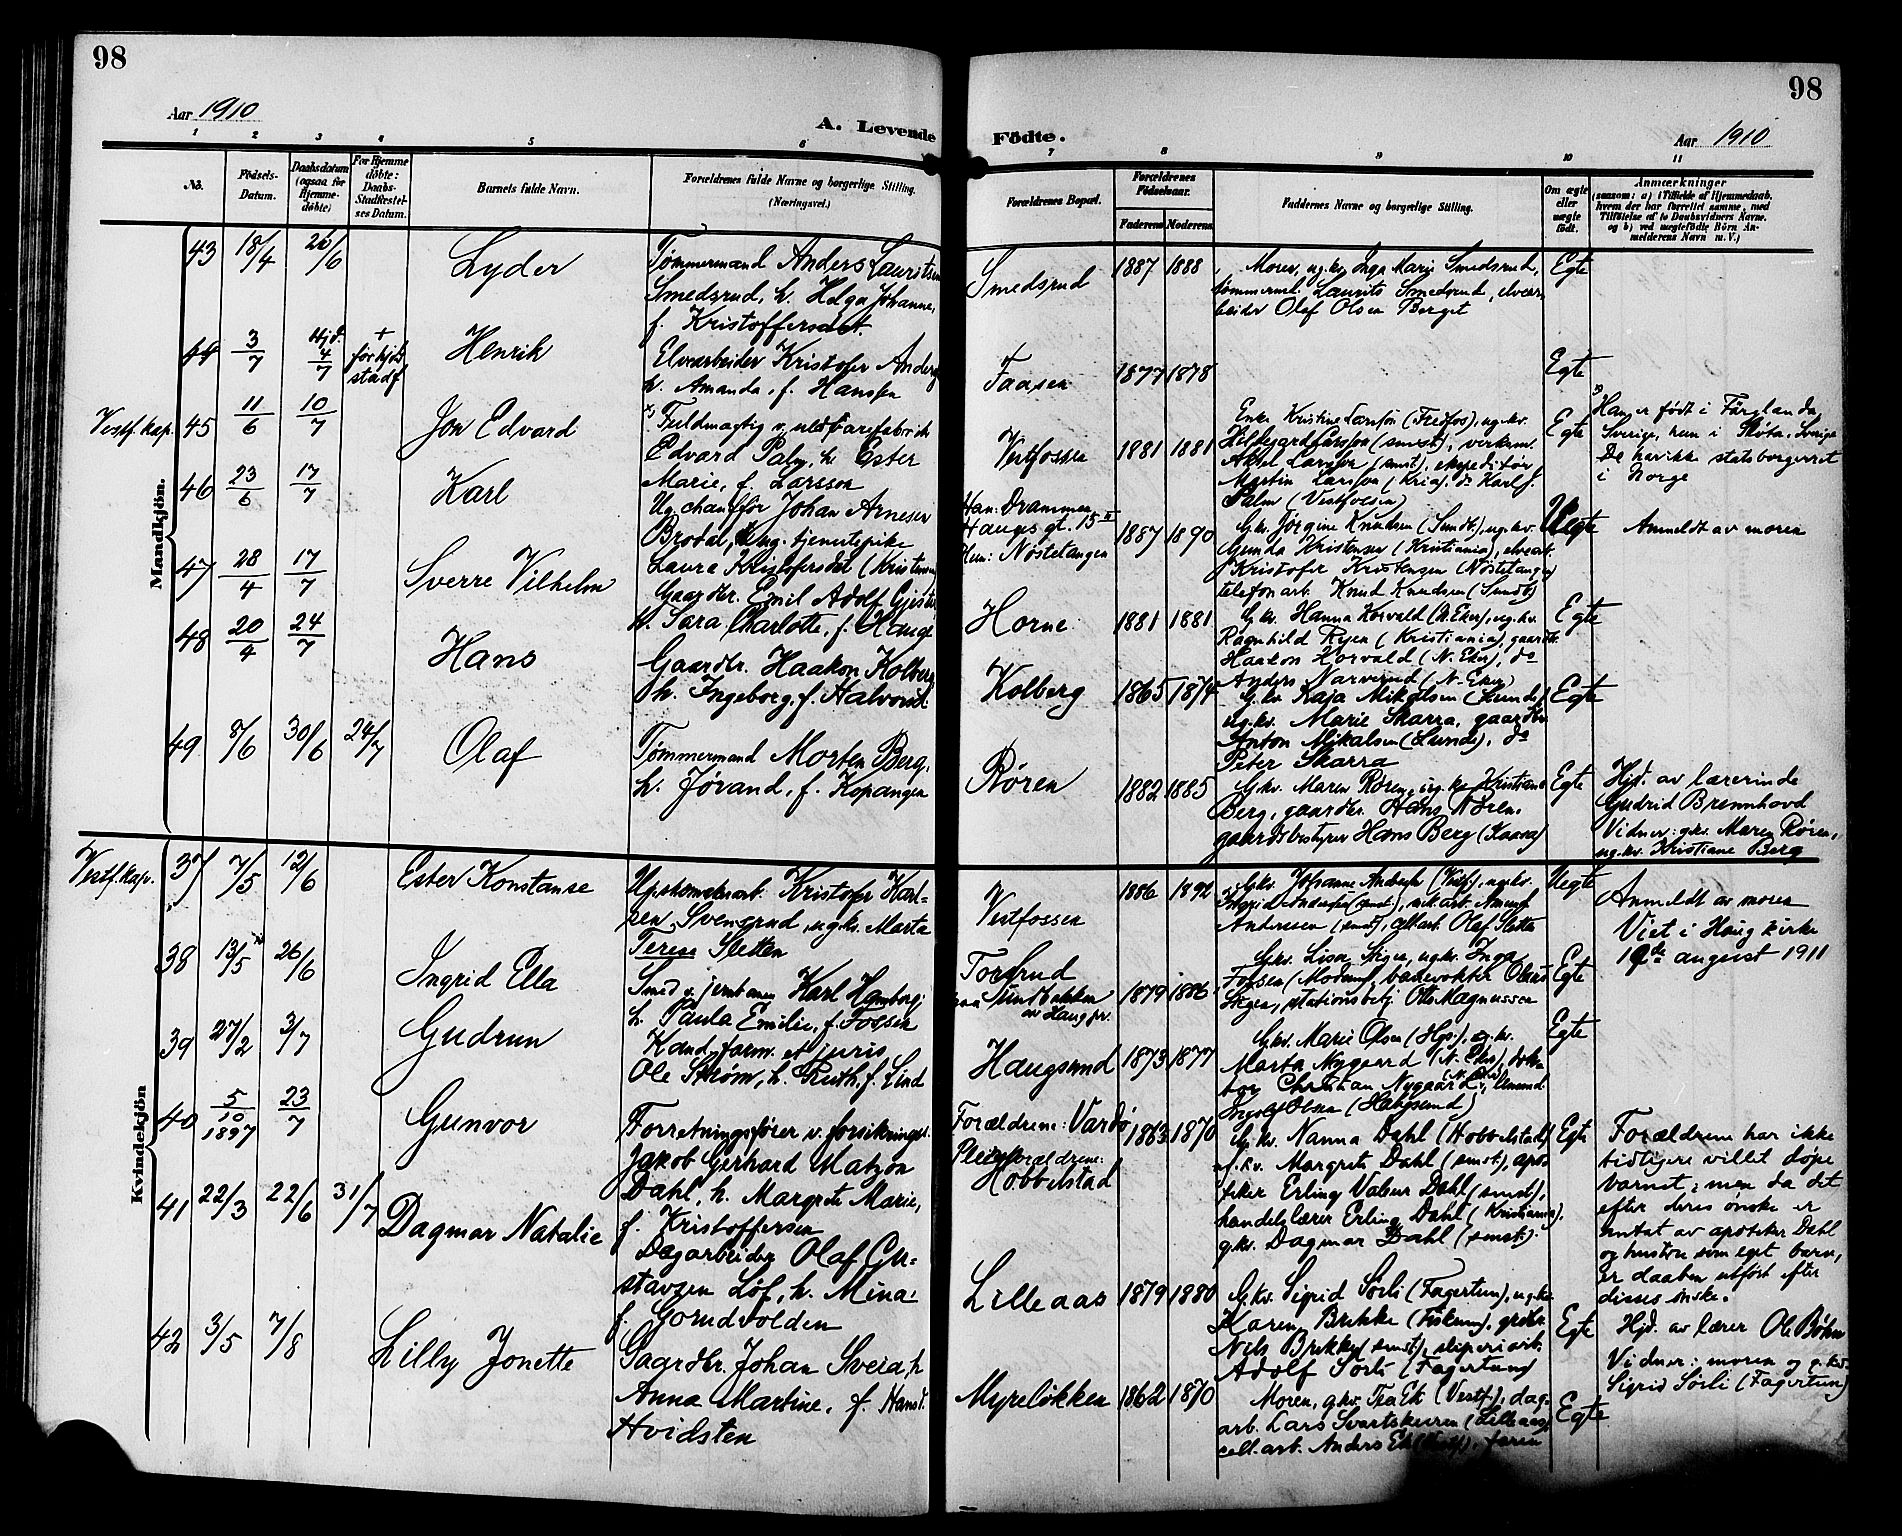 98
98
Aar 1910
A. Levende
Födte.
Aar 1910
1 2 3 4 5 6
7 8 9 10 11
No.
Födsels-
Datum.
Daabsdatum
(ogsaa for
Hjemme-
döbte)
For Hjemme
döbte:
Daabs-
Stadfæstel-
ses Datum.
Barnets fulde Navn.
Forældrenes fulde Navne og borgerlige Stilling.
(Næringsvei.)
Forældrenes Bopæl.
Forældrenes
Födselsaar.
Faderens
Moderens
Faddernes Navne og borgerlige Stilling.
Om ægte
eller
uægte
födt.
Anmærkninger
(saasom: a) i Tilfælde af Hjemmedaab.
hvem der har forrettet samme, med
Tilföielse af to Daabsvidners Navne.
og b) ved uægtefödte Börn An-
melderens Navn m. V.)
Mandkjön.
43 18/4 26/6
Lyder
Tømmermand Anders Lauritsen
Smedsrud, h. Helga Johanne,
f. Kristoffersdat.
Smedsrud
1887 1888
Moren, ug.kv. Inga Marie Smedsrud,
tømmerm. Laurits Smedsrud, elvear-
beider Olaf Olsen Berget
Egte
44 3/7 Hjd. 4/7
+
før hjd.
stadf.
Henrik
Elvearbeider Kristofer Anders
h. Amanda, f. Hansen
Faasen
1877 1878
Egte
Vestf. kap. 45 11/6 10/7
Jon Edvard
x) Fuldmægtig v. uldvarefabrik
Edvard Palm, h. Ester
Marie, f. Larsson
Vestfossen
1881 1881
Enke Kristine Larsson (Fredfos), ug.kv.
Hildegard Larsson (smst.), verksm.
Aksel Larsson (smst), ekspeditør
Martin Larsson (Kria), do Karl J.
Palm (Vestfossen)
Egte
x) Han er født i Färglanda,
Sverige, hun i Skøta, Sverige
De har ikke statsborgerret
i Norge
46 23/6 17/7
Karl
Ug. chauffør Johan Arnesen
Brodal, ug. tjenestepike
Laura Kristofersdat (Kristensen)
Han: Drammen
Haugsgt. 15 II
Hun: Nøstetangen
1887 1890
G.kv. Jørgine Knudsen (Sundb), ug.kv.
Gunda Kristensen (Kristiania), elvearb.
Kristofer Kristensen (Nøstetangen)
telefonarb. Knud Knudsen (Sundb)
Uegte
Anmeldt av moren
47 28/4 17/7
Sverre Vilhelm
Gaardbr. Emil Adolf Gjester
h. Sara Charlotte, f. Hauge
Horne
1881 1881
G.kv. Hanna Korvald (N. Eker), ug.kv.
Ragnhild Ryen (Kristiania), gaardbr.
Haakon Horvald (N. Eker), do
Anders Narverud (N. Eker)
Egte
48 20/4 24/7
Hans
Gaardbr. Haakon Kolberg
h. Ingeborg, f. Halvorsd.
Kolberg
1865 1874
G.kv. Kaja Mikalsen (Lunde)
ug.kv. Marie Skarra, gaardbr.
Anton Mikalsen (Lunde), do
Peter Skarra
Egte
49 8/6 30/6 24/7
Olaf
Tømmermand Morten Berg,
h. Jørand, f. Kopangen
Røren
1882 1885
G.kv. Maren Røren, ug.kv. Kristiane
Berg, gaardbr. Hans Røren,
gaardsbestyrer Hans Berg (Kaara)
Egte
Hjd. av lærerinde
Gudrid Brennhovd
Vidner: g.kv. Maren Røren,
ug.kv. Kristiane Berg
Kvindekjön
Vestf. kap. 37 7/5 12/6
Ester Konstanse
Kristofer Karl-
sen Svensrud, ug.kv. Marta
Terese Sletten
Vestfossen
1886 1892
G.kv. Johanne Andersen (Vestf), ug.kv.
Ingrid Andersen (smst.), Amund
Anderssen (smst), Olaf Sletten
Uegte
Anmeldt av moren
Viet i Haug kirke
19de august 1911
38 13/5 26/6
Ingrid Ella
Smed v. jernbanen Karl Hamborg,
h. Paula Emilie, f. Fossen
Torsrud
Sundbakken
av Haug pr.
1879 1886
G.kv. Lisa Skgen, ug.kv. Inga
Fossen (Modum), banevokter Olaus
Skgen, stationsbetj. Otto Magnussen
Egte
39 27/2 3/7
Gudrun
Kand. farm. et juris
Ole Strøm, h. Ruth, f. Lind
Haugsund
1873 1877
G.kv. Marie Olsen (Hgs), ug.kv.
Marta Nygaard (N. Eker), dok-
tor Christian Nygaard (N. Eker),
Ingolf Olsen (Haugsund)
Egte
40 5/10 1897 23/7
Gunvor
Forretningsfører v. forsikringss.
Jakob Gerhard Matzon
Dahl, h. Margrete Marie,
f. Kristoffersen
Forældrene: Vardø
Pleieforældrene:
Hobbelstad
1863 1870
G.kv. Nanna Dahl (Hobbelstad)
ug.kv. Margrete Dahl (smst), apo-
teker Erling Valeur Dahl (smst),
handelslærer Erling Dahl (Kristiania).
g.kv. Dagmar Dahl (smst).
Egte
Forældrene har ikke
tidligere villet døpe
barnet; men da det
efter deres ønske er
antat av apoteker Dahl
og hustru som eget barn,
er daaben utført efter
disses ønske.
41 22/3 22/6 31/7
Dagmar Natalie
Dagarbeider Olaf Gu-
stavsen Løf, h. Mina
f. Gorudvolden
Lilleaas
1879 1880
G.kv. Sigrid Sørli (Fagertun), ug.kv.
Karen Brekke (Fiskum), grdbr.
Nils Brekke (smst), sliperiarb.
Adolf Sørli (Fagertun)
Egte
Hjd. av lærer Ole Bøhn
Vidner: moren og g.kv.
Sigrid Sørli (Fagertun)
42 3/5 7/8
Lilly Jonette
Gaardbr. Johan Sveia, h.
Anna Martine, f. Hansd.
Hvidsten
Myreløkken
1862 1870
Moren, g.kv. Tea Ek (Vestf.), dag-
arb. Lars Svartskuren (Lilleaas)
cell.arb. Anders Ek (Vestf), faren
Egte